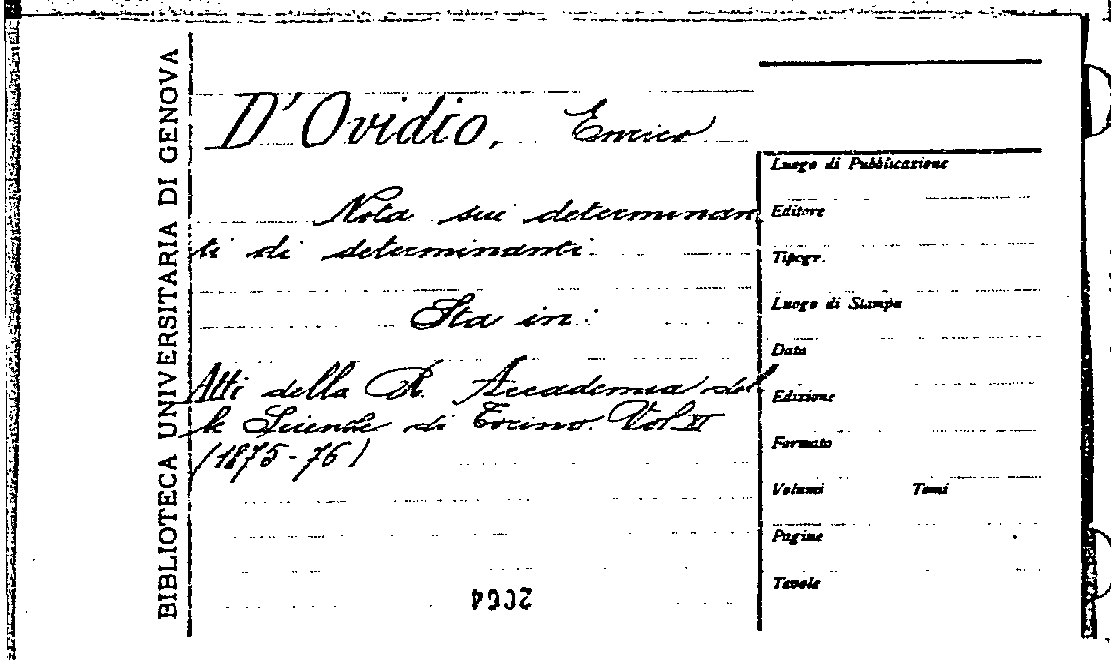 BIBLIOTECA UNIVERSITARIA DI GENOVA
D'Ovidio, Enrico
Nota sui determinan
ti di determinanti.
Sta in:
Atti della R. Accademia del
le Scienze di Torino. Vol XI
(1875-76)
Luogo di Pubblicazione
Editore
Tipogr.
Luogo di Stampa
Data
Edizione
Formato
Volumi Tomi
Pagine
Tavole